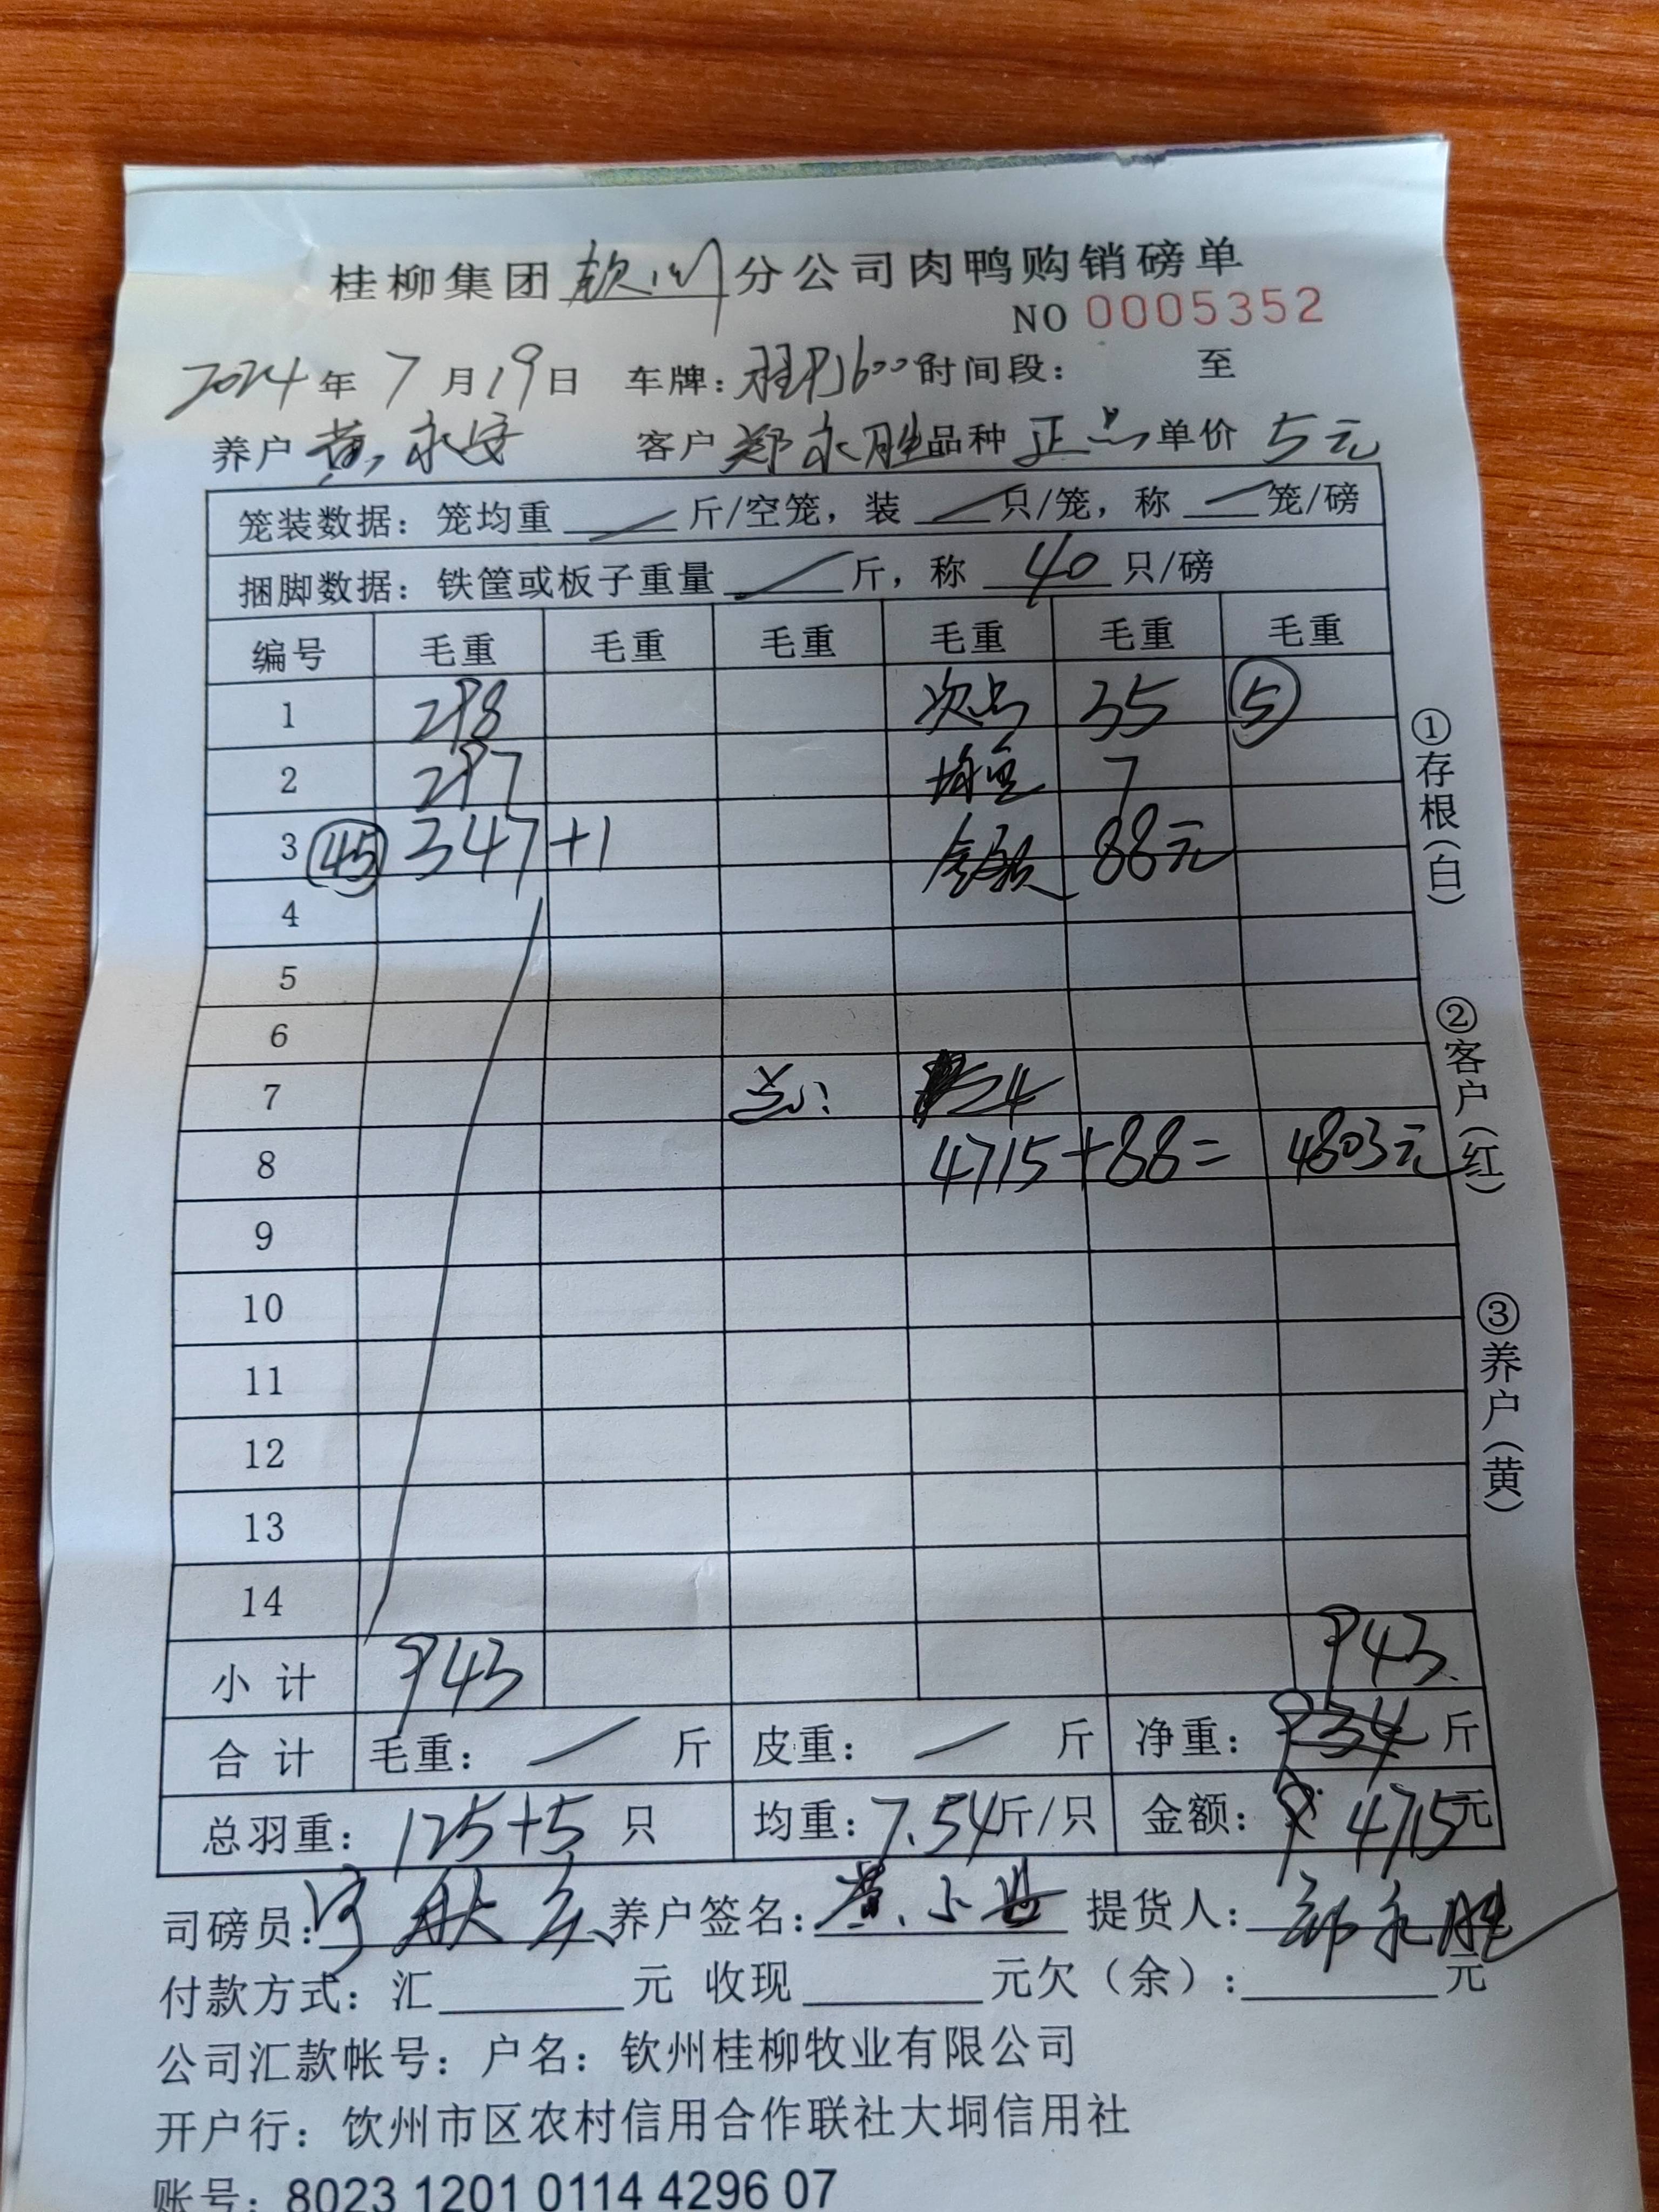 桂柳集团钦州分公司肉鸭购销磅单
NO 0005352
2024年 7月19日 车牌: 时间段: 至
养户 黄永安 客户 郑永胜 品种 正品 单价 5元
笼装数据: 笼均重 斤/空笼, 装 只/笼, 称 笼/磅
捆脚数据: 铁筐或板子重量 斤, 称 40 只/磅
编号 毛重 毛重 毛重 毛重 毛重 毛重
1 298 次品 35 ⑤
2 297 均重 7
3 ㊺ 347 +1 金额 88元
4
5
6
7 24
8 4715+88= 4803元
9
10
11
12
13
14
小计 943 943
合计 毛重: 斤 皮重: 斤 净重: 934 斤
总羽重: 125+5 只 均重: 7.54斤/只 金额: 4715元
司磅员: 养户签名: 提货人: 郑永胜
付款方式: 汇 元 收现 元欠(余): 元
公司汇款帐号: 户名: 钦州桂柳牧业有限公司
开户行: 钦州市区农村信用合作联社大垌信用社
账号: 8023 1201 0114 4296 07
①存根(白)
②客户(红)
③养户(黄)